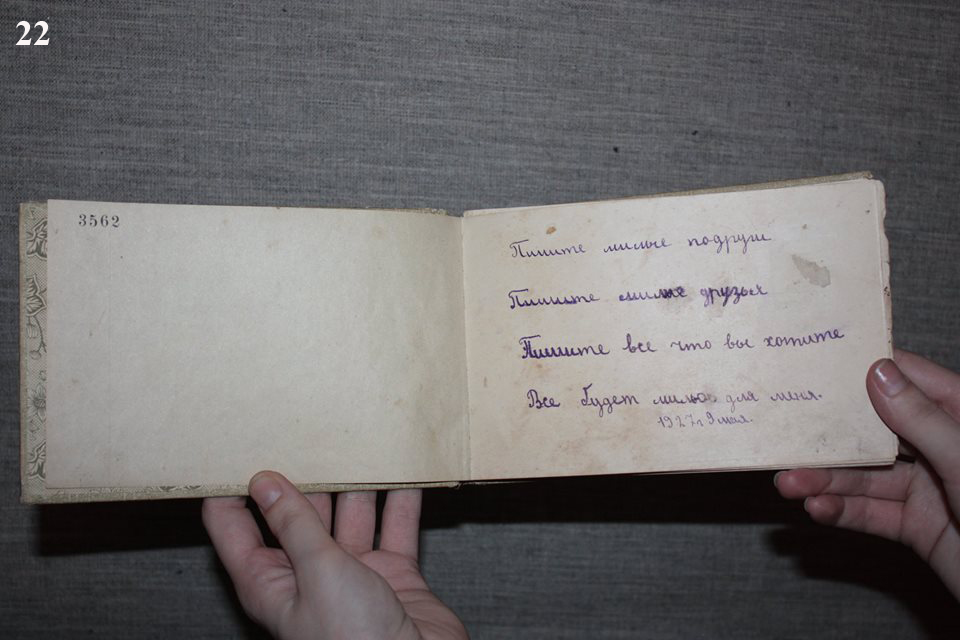 22
3562
Пишите милые подруги
Пишите милые друзья
Пишите все что вы хотите
Все будет мило для меня.
1927 г 9 мая.